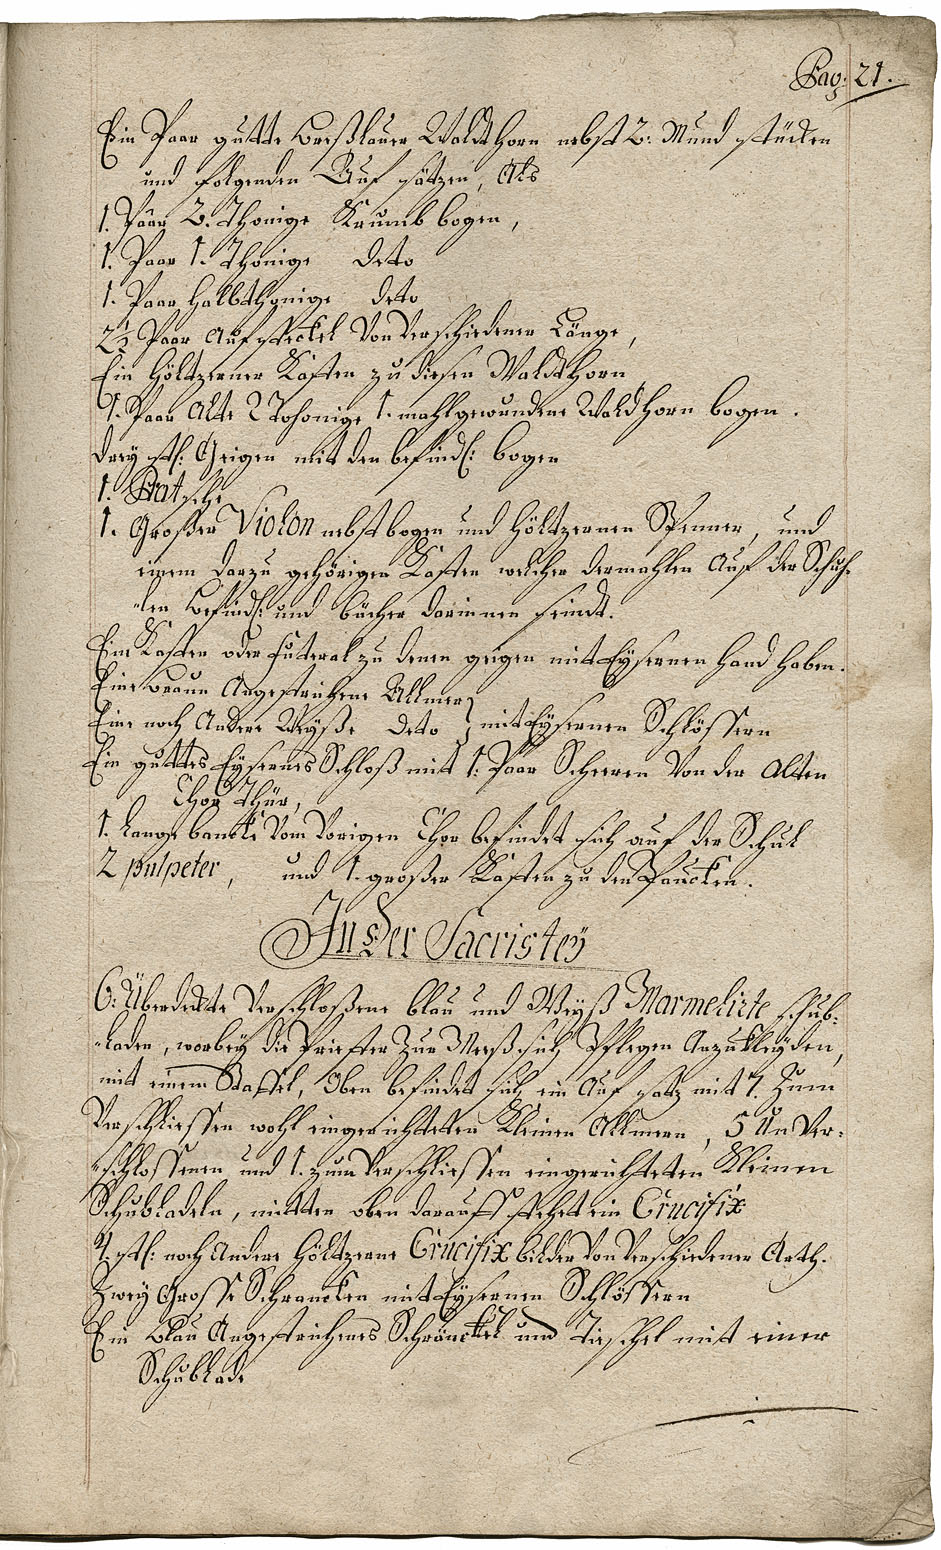 Pag: 21.
Ein Paar gutte Breßlauer Waldt Horn nebst 2: Mund stücken
und folgenden Auf sätzen, Als
1. Paar 2. Thonige Krumb bogen,
1. Paar 1. Thonige deto
1. Paar halbthonige deto
2½ Paar Aufsteckel Von Verschiedener Länge,
Ein Höltzerner Kasten zu diesen Waldt Horn
1. Paar Alte 2 Thonige 1. mahl gewundene Wald Horn bogen.
drey stk: Geigen mit den befindl: bogen
1. Bratsche
1. Großer Violon nebst bogen und Höltzernen Spenner, und
einem darzu gehörigen Kasten welcher dermahlen Auf der Schuh-
"len befindl: und bücher darinnen seindt.
Ein Kasten oder futeral zu denen geigen mit Eysernen hand haben.
Eine braun Angestrichene Allmer
Eine noch Andere Weyße deto } mit Eysernen Schlössern
Ein guttes Eysernes Schloß mit 1. Paar Scheeren Von der Alten
Chor Thür,
1. Lange banck Vom Vorigen Chor befindet sich auf der Schul
2 pulpeter, und 1. großer Kasten zu den Paucken.
In der Sacristey
6: Überdeckte Verschloßene blau und Weyß Marmelirte schub:
"laden, worbey die Priester Zur Meß sich Pflegen Anzukleyden,
mit einem Staffel, Oben befindet sich ein Auf satz mit 7. Zum
Verschliessen wohl eingerichteten Kleinen Allmern, 5 Un Ver:
"schlossenen und 1. zum Verschliessen eingerichteten Kleinen
Schubladeln, mitten oben darauff stehet ein Crucifix
4. stk: noch Andere Höltzerne Crucifix bilder Von Verschiedener Arth.
Zwey Grosse Schrancken mit Eysernen Schlössern
Ein blau Angestrichenes Schränckel und Tischel mit einer
Schublade